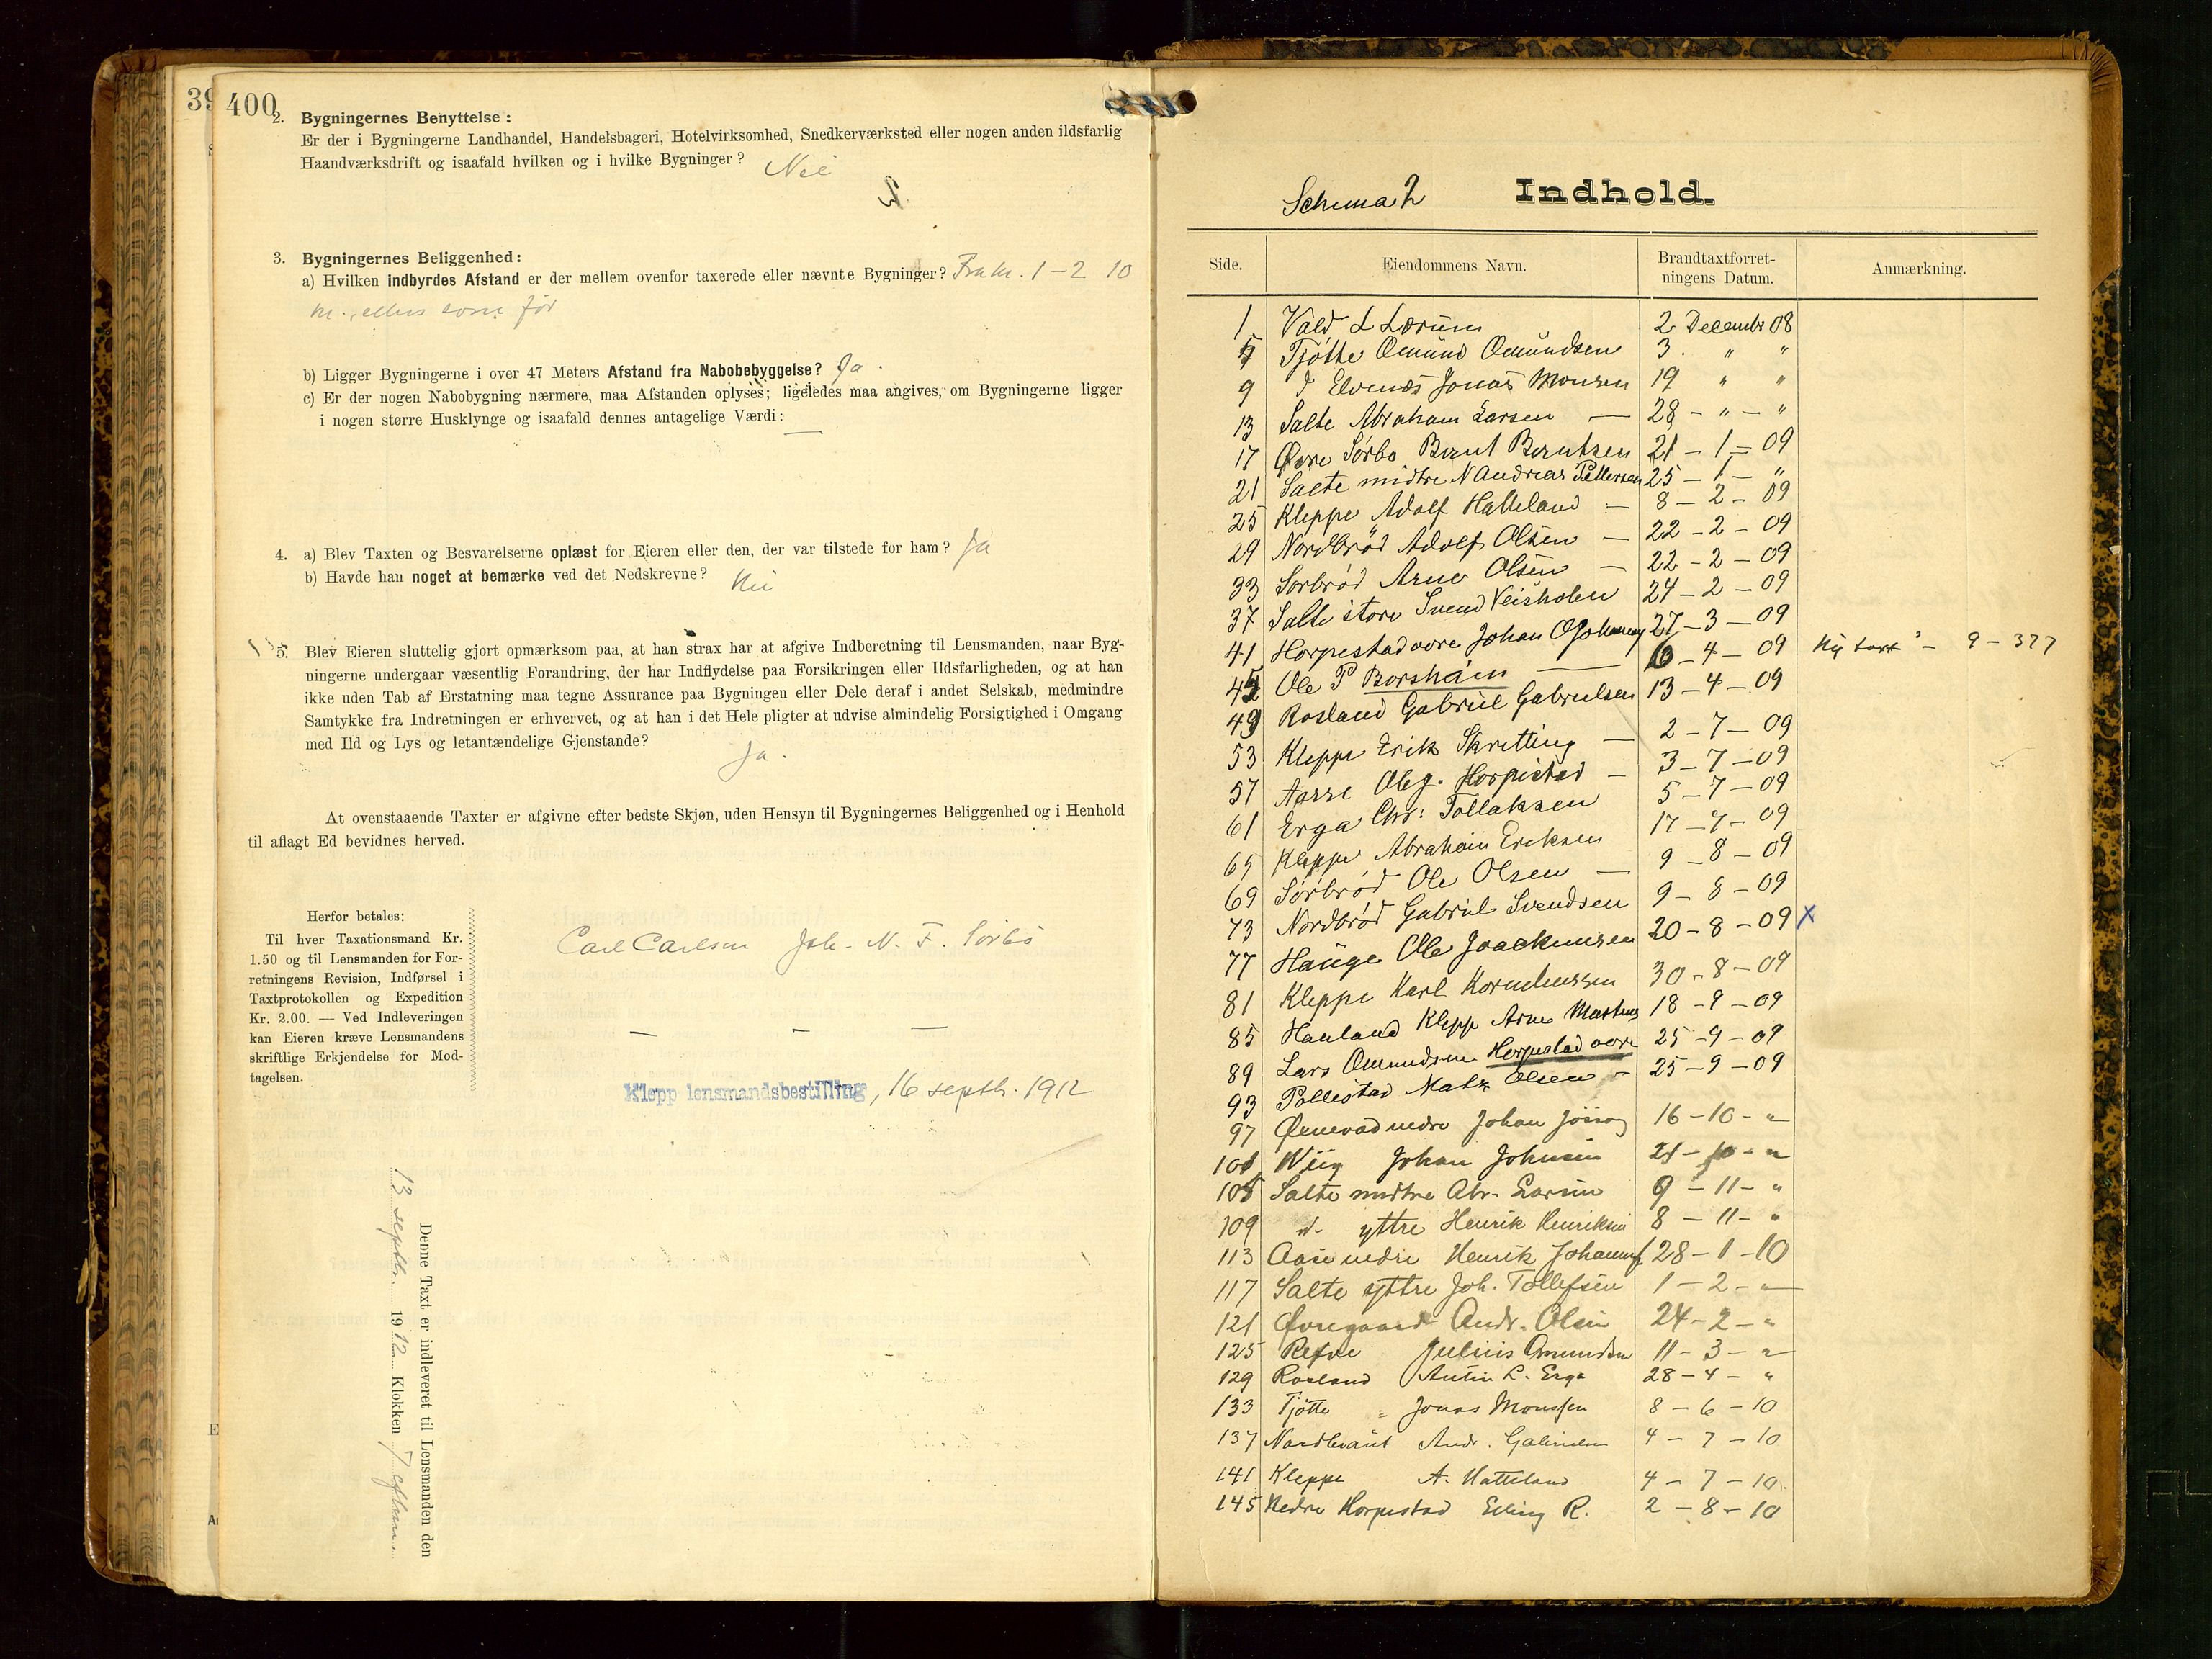 400
39
2. Bygningernes Benyttelse:
Er der i Bygningerne Landhandel, Handelsbageri, Hotelvirksomhed, Snedkerværksted eller nogen anden ildsfarlig
Haandværksdrift og isaafald hvilken og i hvilke Bygninger? Nei
3. Bygningernes Beliggenhed:
a) Hvilken indbyrdes Afstand er der mellem ovenfor taxerede eller nævnte Bygninger? Fra nr. 1-2 10
m., ellers som før
b) Ligger Bygningerne i over 47 Meters Afstand fra Nabobebyggelse? Ja.
c) Er der nogen Nabobygning nærmere, maa Afstanden oplyses; ligeledes maa angives, om Bygningerne ligger
i nogen større Husklynge og isaafald dennes antagelige Værdi: —
4. a) Blev Taxten og Besvarelserne oplæst for Eieren eller den, der var tilstede for ham? Ja
b) Havde han noget at bemærke ved det Nedskrevne? Nei
5. Blev Eieren sluttelig gjort opmærksom paa, at han strax har at afgive Indberetning til Lensmanden, naar Byg-
ningerne undergaar væsentlig Forandring, der har Indflydelse paa Forsikringen eller Ildsfarligheden, og at han
ikke uden Tab af Erstatning maa tegne Assurance paa Bygningen eller Dele deraf i andet Selskab, medmindre
Samtykke fra Indretningen er erhvervet, og at han i det Hele pligter at udvise almindelig Forsigtighed i Omgang
med Ild og Lys og letantændelige Gjenstande? Ja.
At ovenstaaende Taxter er afgivne efter bedste Skjøn, uden Hensyn til Bygningernes Beliggenhed og i Henhold
til aflagt Ed bevidnes herved.
Herfor betales:
Til hver Taxationsmand Kr.
1.50 og til Lensmanden for For-
retningens Revision, Indførsel i
Taxtprotokollen og Expedition
Kr. 2.00. — Ved Indleveringen
kan Eieren kræve Lensmandens
skriftlige Erkjendelse for Mod-
tagelsen.
Carl Carlsen Joh. N. F. Sørbø
— — —
Klepp lensmandsbestilling, 16 septb. 1912
Denne Taxt er indleveret til Lensmanden den
13 septbr. 1912 Klokken 7 efterm.
Schema 2 Indhold.
Side. Eiendommens Navn. Brandtaxtforret-
ningens Datum. Anmærkning.
1 Vald L Lærum 2 Decembr 08
5 Tjøtte Omund Omundsen 3. " "
9 Elvenæs Jonas Monsen 19 " "
13 Salte Abraham Larsen — 28 - " - "
17 Øvre Sørbø Bernt Berntsen 21 - 1 - 09
21 Salte midtre N Andreas Pettersen 25 - 1 - "
25 Kleppe Adolf Hatteland — 8 - 2 - 09
29 Nordbrød Adolf Olsen — 22 - 2 - 09
33 Sørbrød Arne Olsen — 22 - 2 - 09
37 Salte store Svend Veisholen 24 - 2 - 09
41 Horpestad øvre Johan O 27 - 3 - 09
45 Ole P Borsheim — 6 - 4 - 09 Ny taxt 9 - 377
49 Rosland Gabriel Gabrielsen 13 - 4 - 09
53 Kleppe Erik Skretting — 2 - 7 - 09
57 Aarre Ole g. Horpestad — 3 - 7 - 09
61 Erga Chr: Tollaksen 5 - 7 - 09
65 Kleppe Abraham Eriksen 17 - 7 - 09
69 Sørbrød Ole Olsen — 9 - 8 - 09
73 Nordbrød Gabriel Svendsen 9 - 8 - 09
77 Hauge Ole Joackimsen 20 - 8 - 09 x
81 Kleppe Karl Korneliussen 30 - 8 - 09
85 Hauland Klepp Arne 18 - 9 - 09
89 Lars Omundsen Horpestad øvre 25 - 9 - 09
93 Pollestad Mats Olsen — 25 - 9 - 09
97 Øxnevad nedre Johan 16 - 10 - "
101 Wiig Johan Johnsen 21 - 10 - "
105 Salte midtre Abr. Larsen 9 - 11 - "
109 d. yttre Henrik Henriksen 8 - 11 - "
113 nedre Henrik 28 - 1 - 10
117 Salte yttre Joh. Tollefsen 1 - 2 - "
121 Øvregaard Andr. Olsen 24 - 2 - "
125 Refve Julius Omundsen 11 - 3 - "
129 Rosland L. Erga 28 - 4 - "
133 Tjøtte Jonas Monssen 8 - 6 - 10
137 Andr. 4 - 7 - 10
141 Kleppe A. Hatteland 4 - 7 - 10
145 Nedre Horpestad Elling R. 2 - 8 - 10